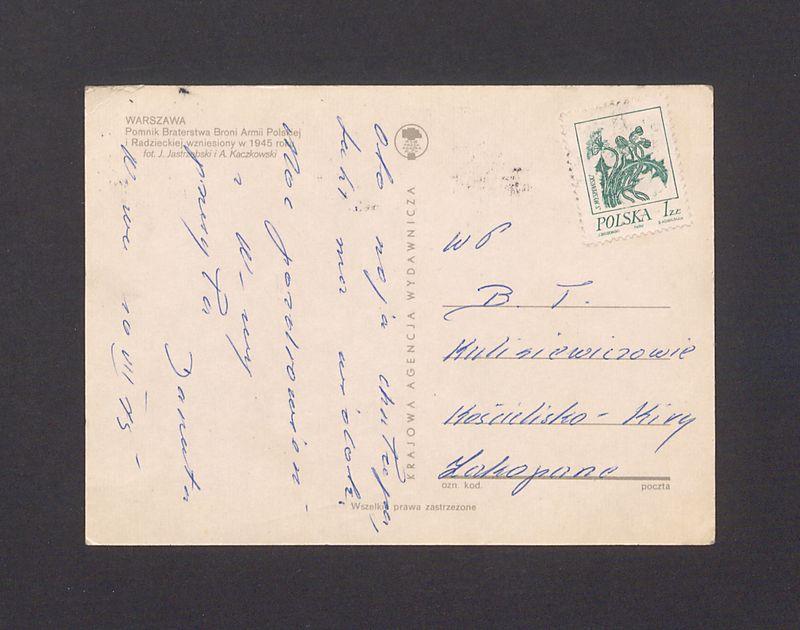 WARSZAWA
Pomnik Braterstwa Broni Armii Polskiej
i Radzieckiej wzniesiony w 1945 roku
fot. J. Jastrzębski i A. Kaczkowski
Oto moja chałupa,
taki ma widok.
Moc pozdrowień
z W-wy
przesyła
Danuta
W-wa 10 VII 75
KRAJOWA AGENCJA WYDAWNICZA
POLSKA 1 ZŁ
S. WYSPIAŃSKI
WP
B. T.
Kulisiewiczowie
Kościelisko - Kiry
Zakopane
ozn. kod. poczta
Wszelkie prawa zastrzeżone